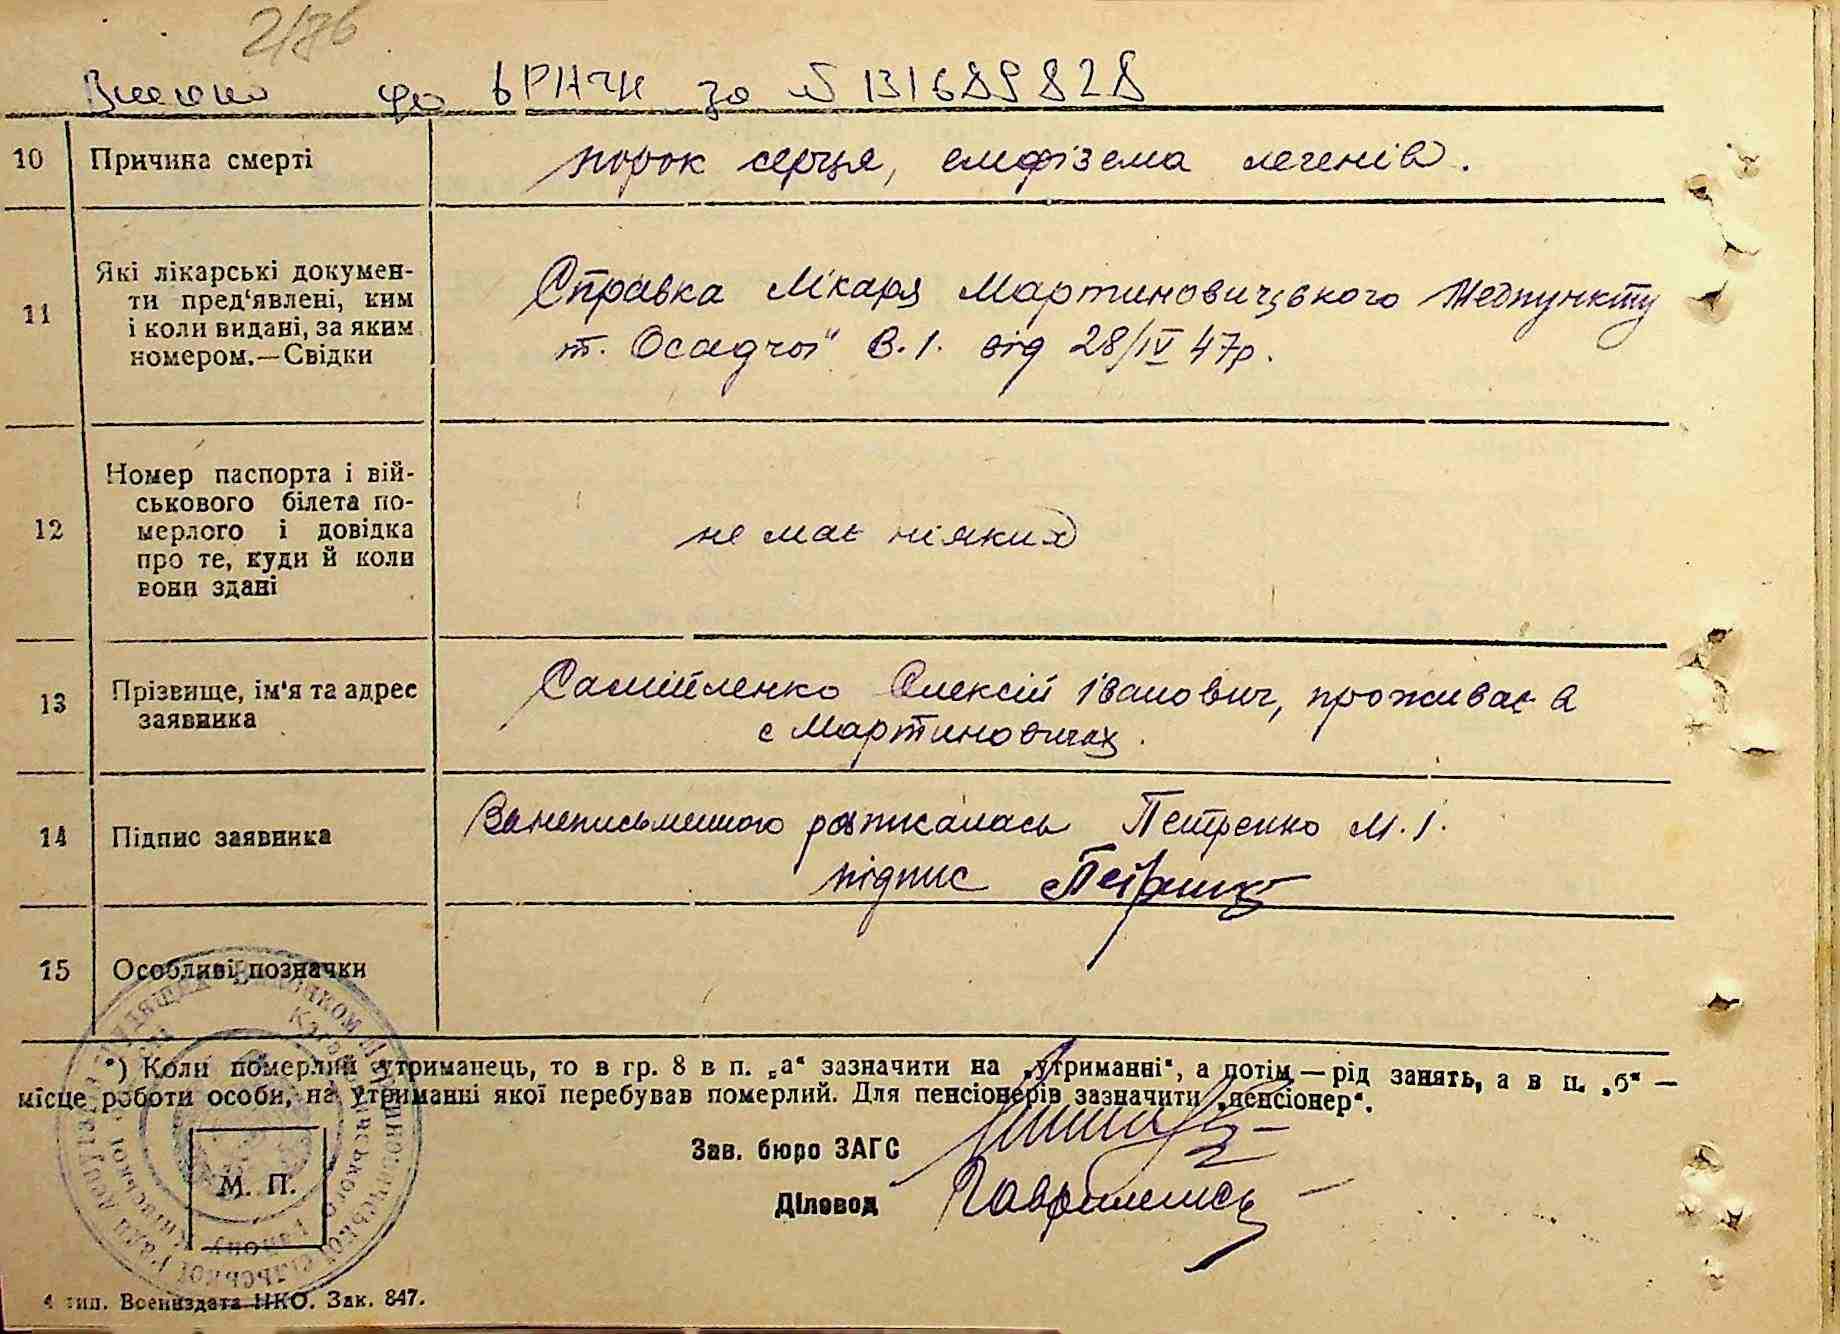 2/76
Внесено до ДРАЦС за № 131689828
10 Причина смерті порок серця, емфізема легенів.
11 Які лікарські докумен-
ти пред'явлені, ким
і коли видані, за яким
номером.—Свідки
Справка Лікаря Мартиновицького Медпункту
т. Осадчої В.І. від 28/IV 47р.
12 Номер паспорта і вій-
ськового білета по-
мерлого і довідка
про те, куди й коли
вони здані
не має ніяких
13 Прізвище, ім'я та адрес
заявника
Самійленко Олексій Іванович, проживає в
с Мартиновичах.
14 Підпис заявника
За неписьменного розписалась Петренко М.І.
підпис Петренко
15 Особливі позначки
*) Коли померлий утриманець, то в гр. 8 в п. „а“ зазначити на „утриманні“, а потім — рід занять, а в п. „б“ —
місце роботи особи, на утриманні якої перебував померлий. Для пенсіонерів зазначити „пенсіонер“.
Зав. бюро ЗАГС
Діловод
М. П.
4 тип. Воениздата НКО. Зак. 847.